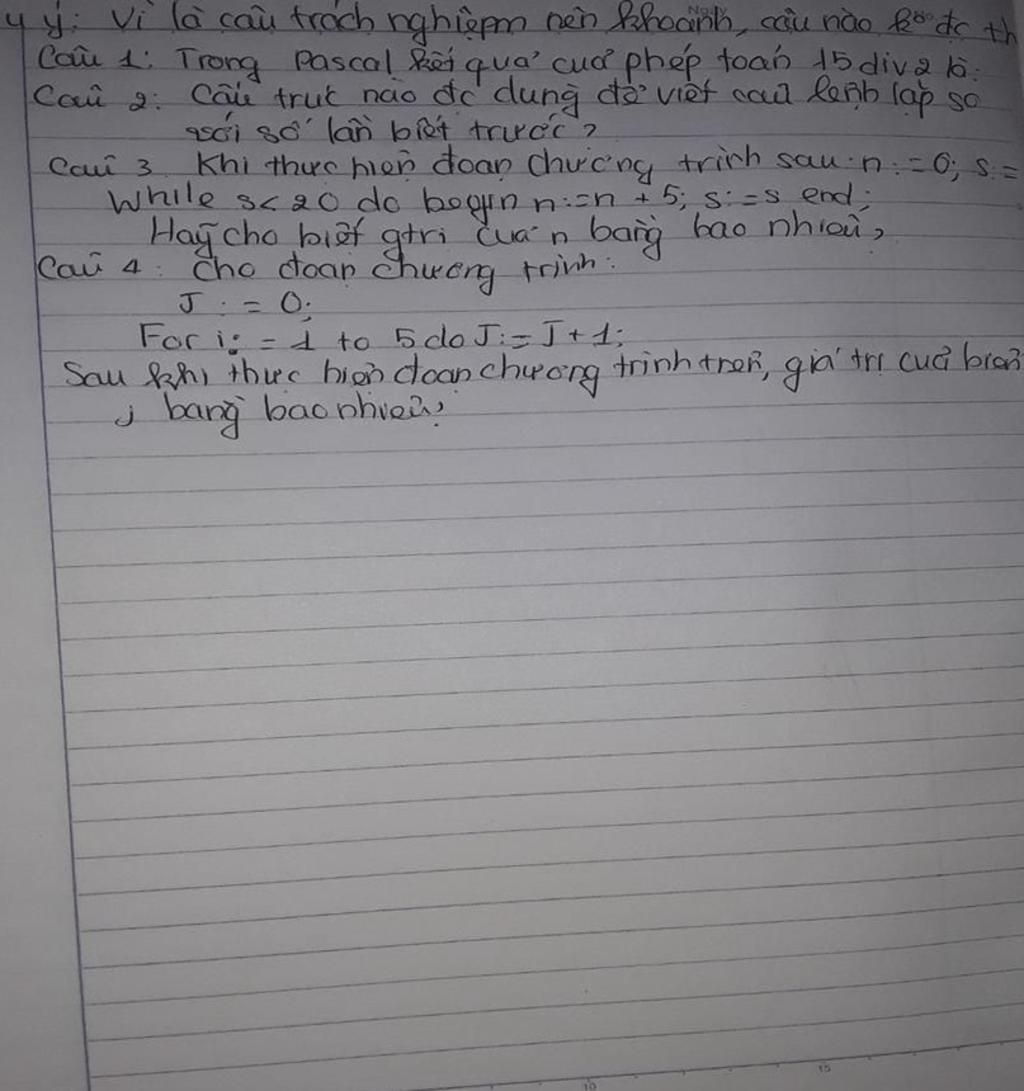 ý: Vì là câu trắc nghiệpm nên khoanh, câu nào k đc th
Câu 1: Trong Pascal kết quả của phép toán 15 div 2 là:
Câu 2: Cấu trúc nào đc dùng để viết câu lệnh lặp so
với số lần biết trước?
Câu 3 Khi thực hiện đoạn chương trình sau: n:=0; s:=
While s<20 do begin n:=n+5; s:=s end;
Hãy cho biết gtrị của n bằng bao nhiêu?
Câu 4: Cho đoạn chương trình:
J:=0;
For i:=1 to 5 do J:=J+1;
Sau khi thực hiện đoạn chương trình trên, giá trị của biến
j bằng bao nhiêu?
10 15